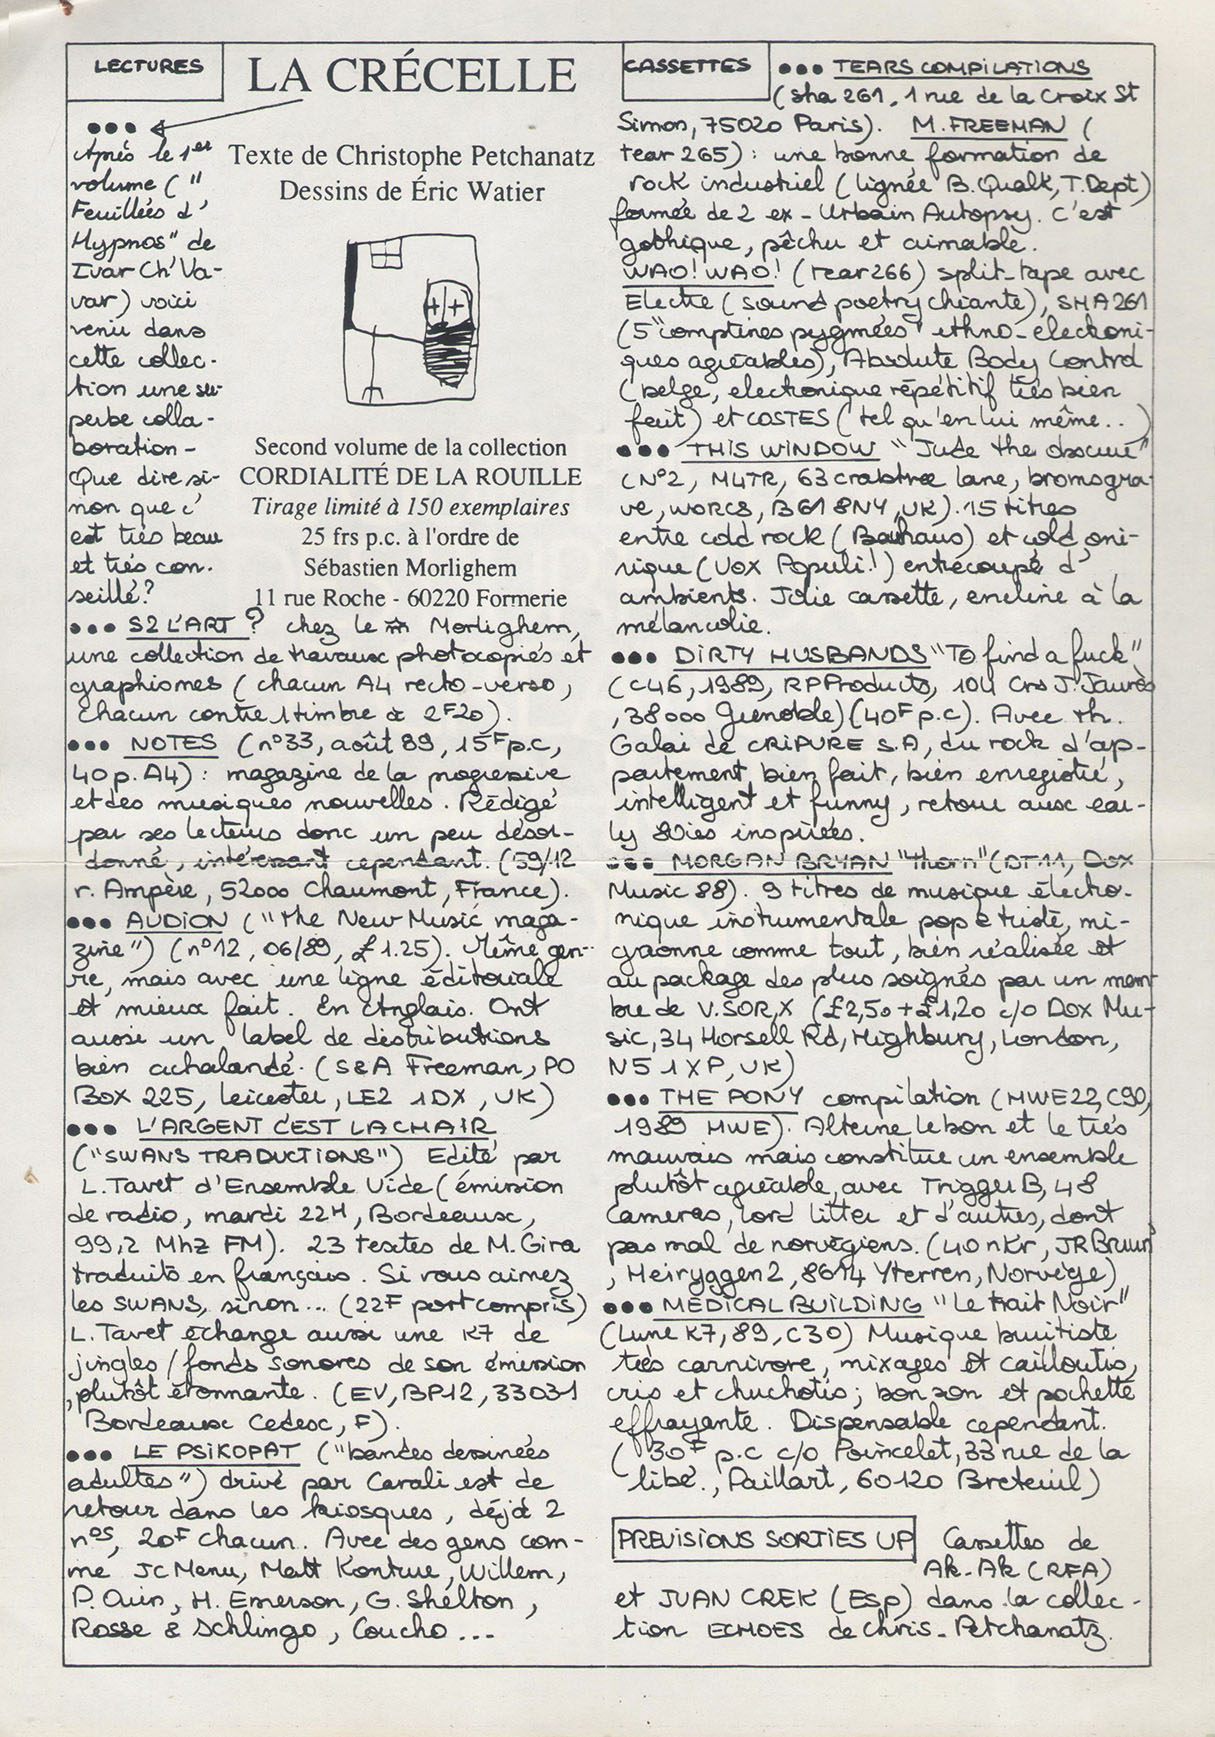 LECTURES
LA CRÉCELLE
Texte de Christophe Petchanatz
Dessins de Éric Watier
Second volume de la collection
CORDIALITÉ DE LA ROUILLE
Tirage limité à 150 exemplaires
25 frs p.c. à l'ordre de
Sébastien Morlighem
11 rue Roche - 60220 Formerie
●●●
Après le 1er
volume ("
Feuillées d'
Hypnos" de
Ivar Ch'Va-
var) voici
venir dans
cette collec-
tion une su-
perbe colla-
boration -
Que dire si-
non que c'
est très beau
et très con-
seillé?
●●● S2 L'ART? chez le Morlighem,
une collection de travaux photocopiés et
graphismes (chacun A4 recto-verso,
chacun contre 1 timbre à 2F20).
●●● NOTES (n°33, août 89, 15F p.c,
40p. A4) : magazine de la progressive
et des musiques nouvelles. Rédigé
par ses lecteurs donc un peu désor-
donné, intéressant cependant. (59/12
r. Ampère, 52000 Chaumont, France).
●●● AUDION ("the New Music maga-
zine") (n°12, 06/89, £1.25). Même gen-
re, mais avec une ligne éditoriale
et mieux fait. En Anglais. Ont
aussi un label de distributions
bien achalandé. (S&A Freeman, PO
Box 225, Leicester, LE2 1DX, UK)
●●● L'ARGENT C'EST LA CHAIR
("SWANS TRADUCTIONS") Edité par
L.Tavet d'Ensemble Vide (émission
de radio, mardi 22H, Bordeaux,
99,2 Mhz FM). 23 textes de M. Gira
traduits en français. Si vous aimez
les SWANS, sinon... (22F port compris)
L.Tavet échange aussi une K7 de
jingles/fonds sonores de son émission
, plutôt étonnante. (EV, BP12, 33031
Bordeaux Cedex, F).
●●● LE PSIKOPAT ("bandes dessinées
adultes") drivé par Carali est de
retour dans les kiosques, déjà 2
nos, 20F chacun. Avec des gens com-
me JC Menu, Matt Konture, Willem,
P. Ouin, H. Emerson, G. Shelton,
Rosse & Schlingo, Coucho...
CASSETTES
●●● TEARS COMPILATIONS
(sha 261, 1 rue de la Croix St
Simon, 75020 Paris). M. FREEMAN (
tear 265) : une bonne formation de
rock industriel (lignée B. Qualk, T. Dept)
formée de 2 ex-Urbain Autopsy. C'est
gothique, pêchu et aimable.
WAO! WAO! (tear 266) split-tape avec
Electre (sound poetry chiante), SHA261
(5 "comptines pygmées" ethno-électroni-
ques agréables), Absolute Body Control
(belge, electronique répétitif très bien
fait) et COSTES (tel qu'en lui même..)
●●● THIS WINDOW "Jude the obscure"
(N°2, M4TR, 63 crabtree lane, bromsgra-
ve, worcs, B61 8NY, UK). 15 titres
entre cold rock (Bauhaus) et cold oni-
rique (Vox Populi!) entrecoupé d'
ambients. Jolie cassette, encline à la
mélancolie.
●●● DIRTY HUSBANDS "To find a fuck"
(C46, 1989, RPProducts, 104 Crs J. Jaurès
, 38000 Grenoble) (40F p.c). Avec th.
Galai de CRIPURE S.A, du rock d'ap-
partement, bien fait, bien enregistré,
intelligent et funny, retour aux ear-
ly 80ies inspirées.
●●● MORGAN BRYAN "thorn" (DT11, Dox
Music 88). 9 titres de musique électro-
nique instrumentale pop & triste, mi-
gnonne comme tout, bien réalisée et
au package des plus soignés par un mem
bre de V.SOR,X (£2,50+£1,20 c/o Dox Mu-
sic, 34 Horsell Rd, Highbury, London,
N5 1XP, UK)
●●● THE PONY compilation (MWE22, C90,
1989 MWE). Alterne le bon et le très
mauvais mais constitue un ensemble
plutôt agréable, avec Trigger B, 48
Cameras, Lord Litter et d'autres, dont
pas mal de norvégiens. (40 nKr, JR Bruun
, Heiryggen 2, 8614 Yterren, Norvège)
●●● MEDICAL BUILDING "Le trait Noir"
(Lune K7, 89, C30) Musique bruitiste
très carnivore, mixages et cailloutis,
cris et chuchotis ; bon son et pochette
effrayante. Dispensable cependant.
(30F p.c c/o Poincelet, 33 rue de la
libé., Paillart, 60120 Breteuil)
PREVISIONS SORTIES UP Cassettes de
Ak-Ak (RFA)
et JUAN CREK (Esp) dans la collec-
tion ECHOES de Chris-Petchanatz.